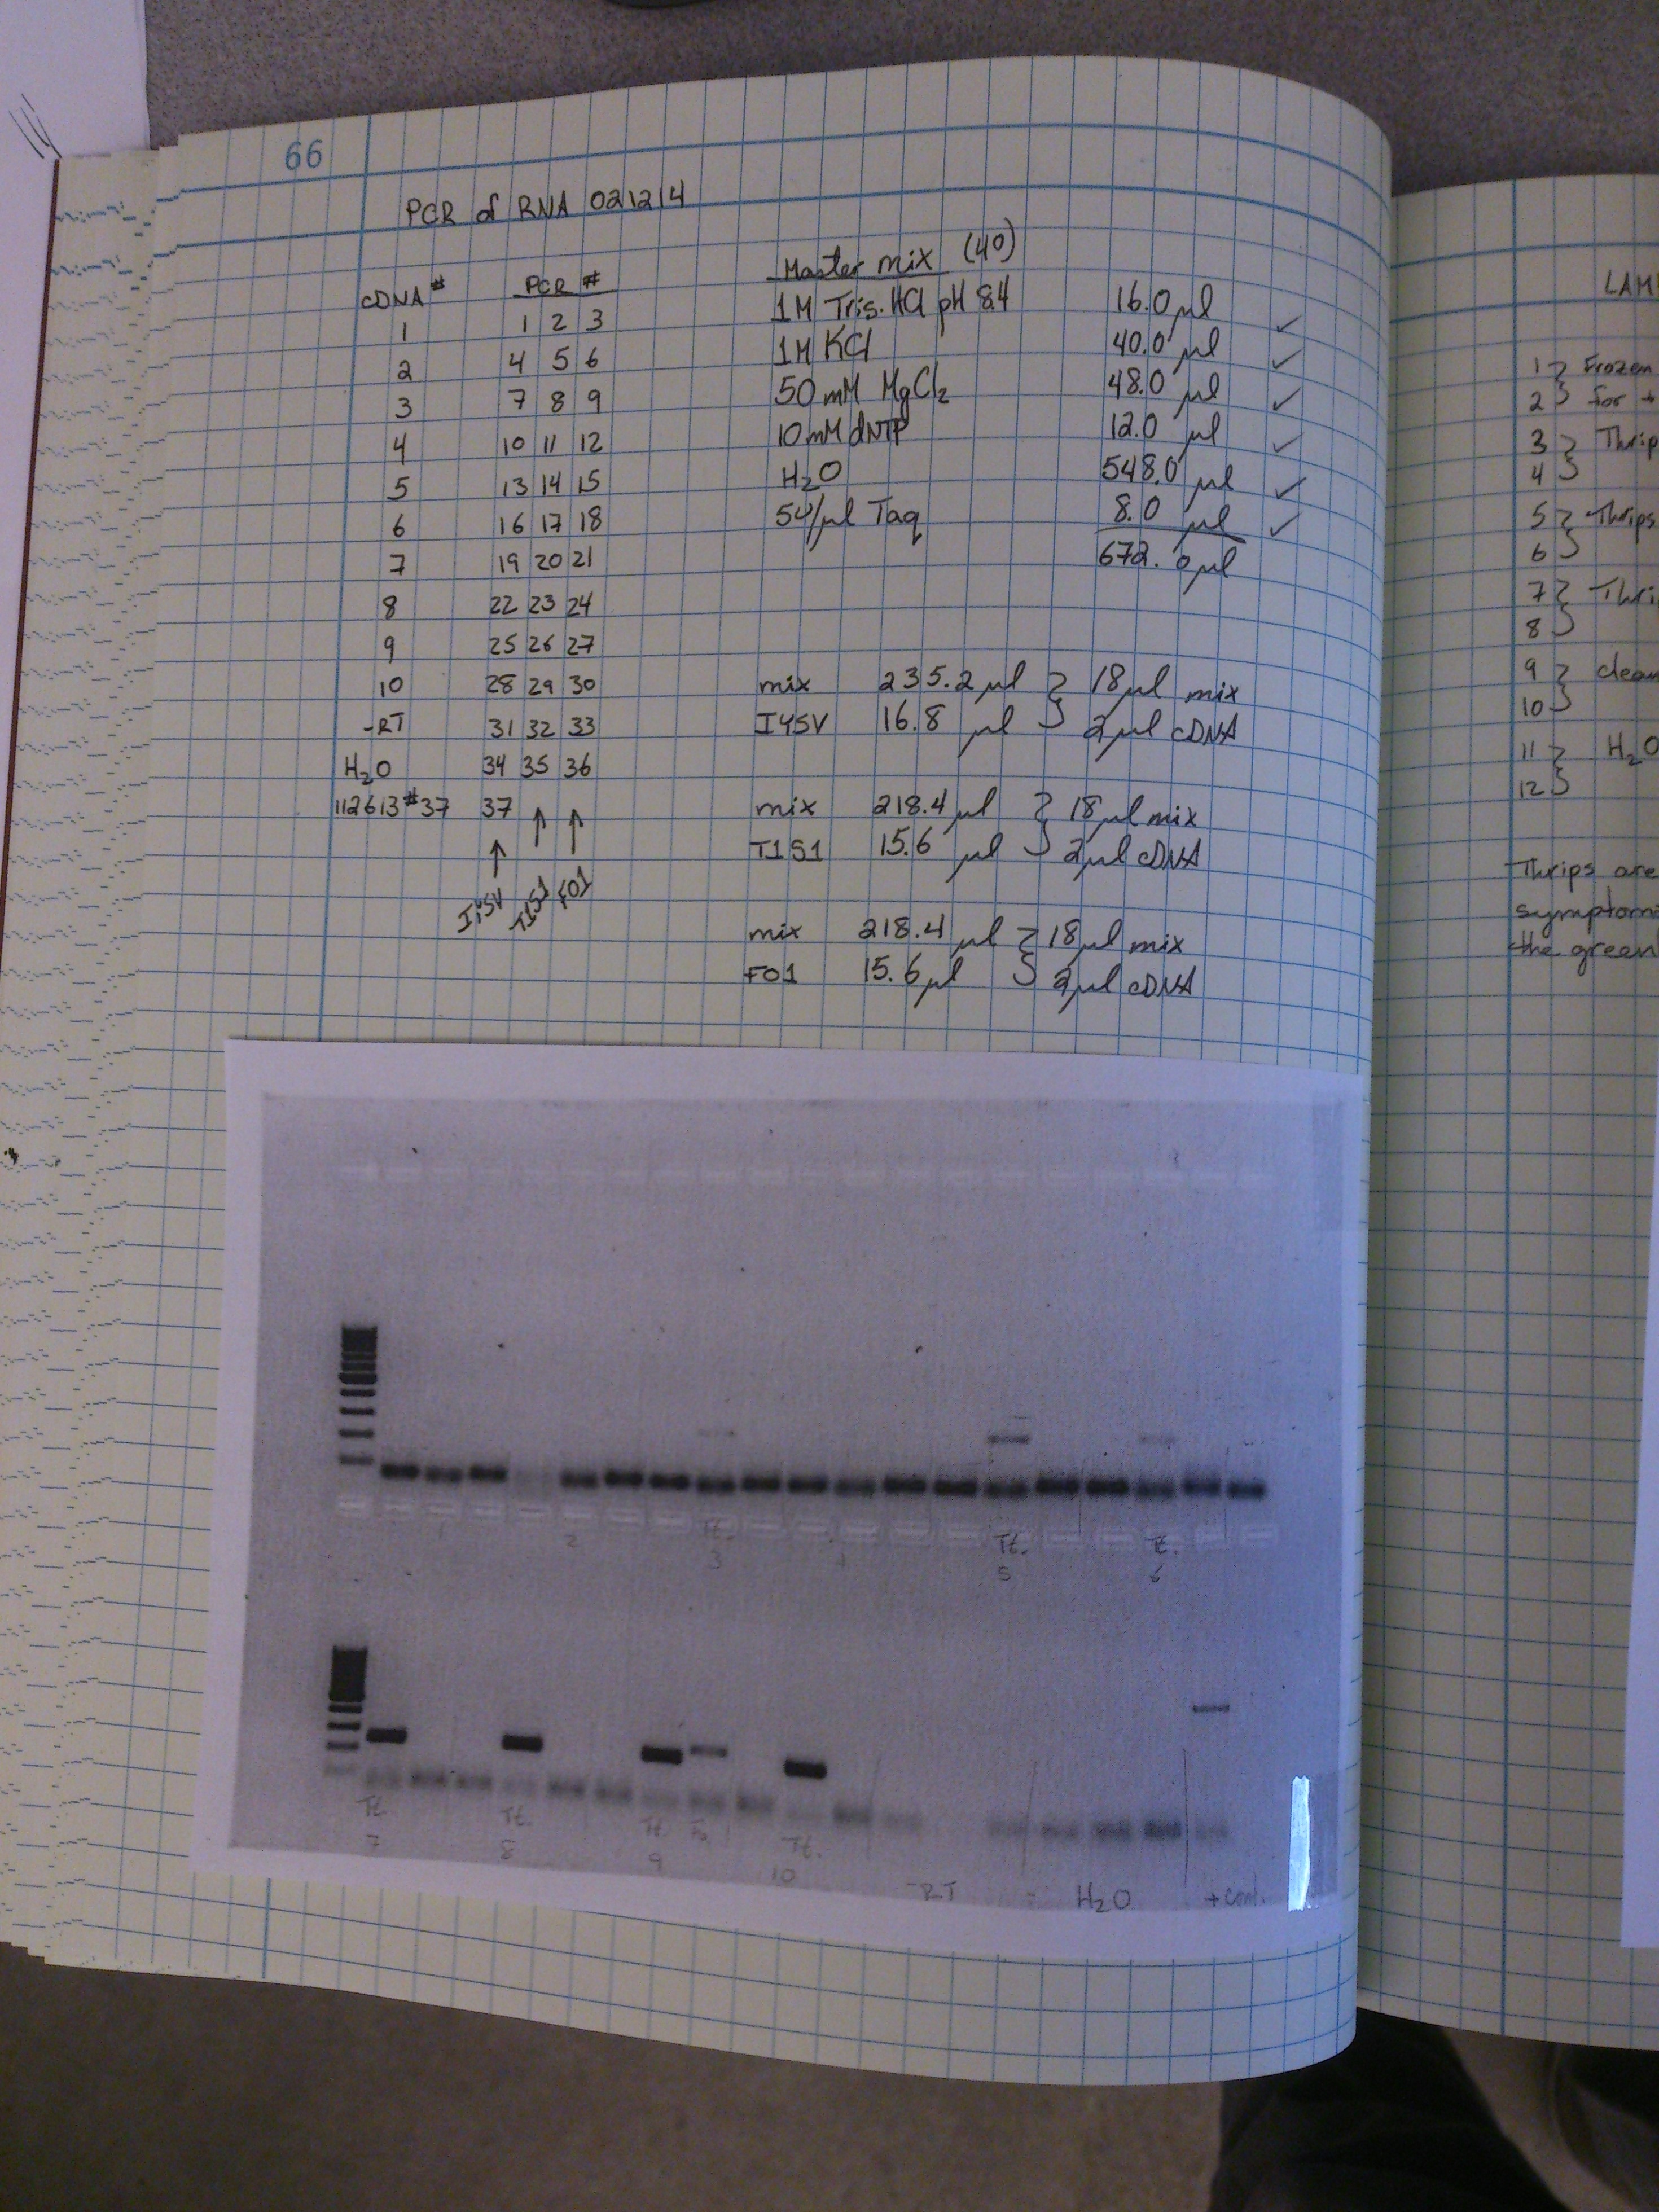 66
PCR of RNA 021214
cDNA # PCR #
1 1 2 3
2 4 5 6
3 7 8 9
4 10 11 12
5 13 14 15
6 16 17 18
7 19 20 21
8 22 23 24
9 25 26 27
10 28 29 30
-RT 31 32 33
H2O 34 35 36
112613 #37 37
↑ ↑ ↑
IYSV T1S1 F01
Master mix (40)
1M Tris·HCl pH 8.4 16.0 µl ✓
1M KCl 40.0 µl ✓
50 mM MgCl2 48.0 µl ✓
10 mM dNTP 12.0 µl ✓
H2O 548.0 µl ✓
5U/µl Taq 8.0 µl ✓
672.0 µl
mix 235.2 µl } 18 µl mix
IYSV 16.8 µl } 2 µl cDNA
mix 218.4 µl } 18 µl mix
T1S1 15.6 µl } 2 µl cDNA
mix 218.4 µl } 18 µl mix
F01 15.6 µl } 2 µl cDNA
1 2 Tt. 3 4 Tt. 5 Tt. 6
Tt. Tt. Tt. Fo. Tt.
7 8 9 10
-RT - H2O + cont.
LAM
1 } Frozen
2 } for
3 } Thrip
4
5 } Thrips
6
7 } Thri
8
9 } clean
10
11 } H2O
12
Thrips are
symptom
the green